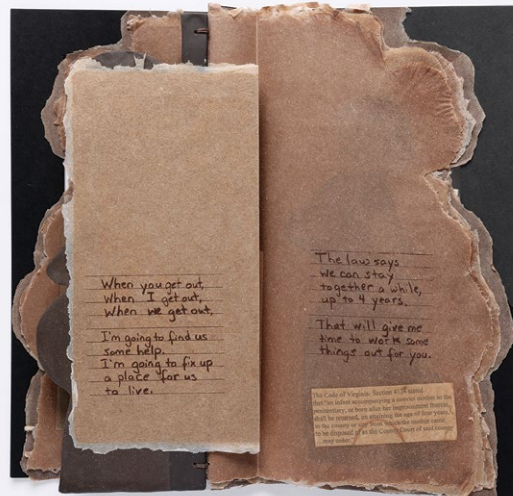 When you get out,
When I get out,
When we get out,
I'm going to find us
some help.
I'm going to fix up
a place for us
to live.
The law says
we can stay
together a while,
up to 4 years.
That will give me
time to work some
things out for you.
The Code of Virginia, Section
that "an infant accompanying a convict mother to the
penitentiary, or born after her imprisonment therein,
shall be returned, on attaining the age of four years,
to the county or city from which the mother came
to be disposed of as the County Court of said county
may order."